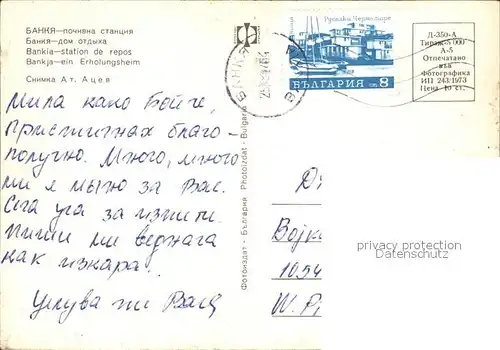 БАНКЯ—почивна станция
Банкя—дом отдыха
Bankia—station de repos
Bankja—ein Erholungsheim
Снимка Ат. Ацев
Мила како Бойче,
Пристигнах благо-
получно. Много, много
ми я мъчно за Вас.
Сега уча за изпити.
Пиши ми веднага
как изкара.
Целува ти Ваця
Фотоиздат - България Photoizdat - Bulgaria
БАНКЯ
БЪЛГАРИЯ
ст. 8
Д-350-А
Тираж 5 000
А-5
Отпечатано
във
Фотографика
ИП 243/1973
Цена 10 ст.
Војк
1054
W. P
privacy protection
Datenschutz